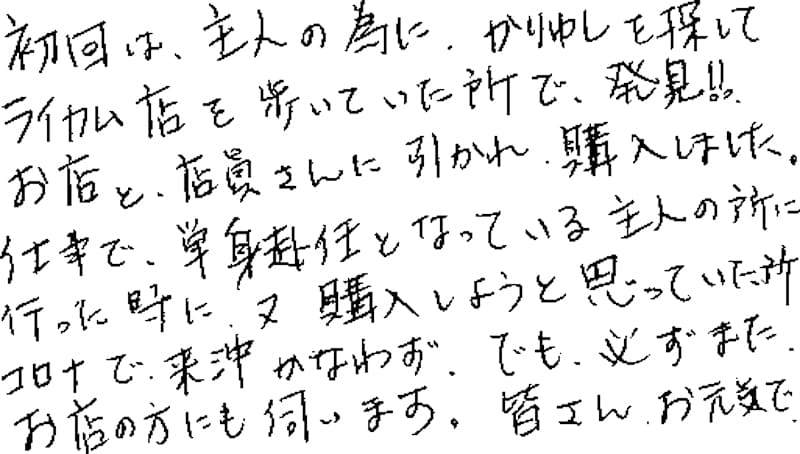 初回は、主人の為に、かりゆしを探して
ライカム店を歩いていた所で、発見!!
お店と、店員さんに引かれ、購入しました。
仕事で、単身赴任となっている主人の所に
行った時に、又購入しようと思っていた所
コロナで、来沖かなわず、でも、必ずまた、
お店の方にも伺います。皆さん、お元気で、